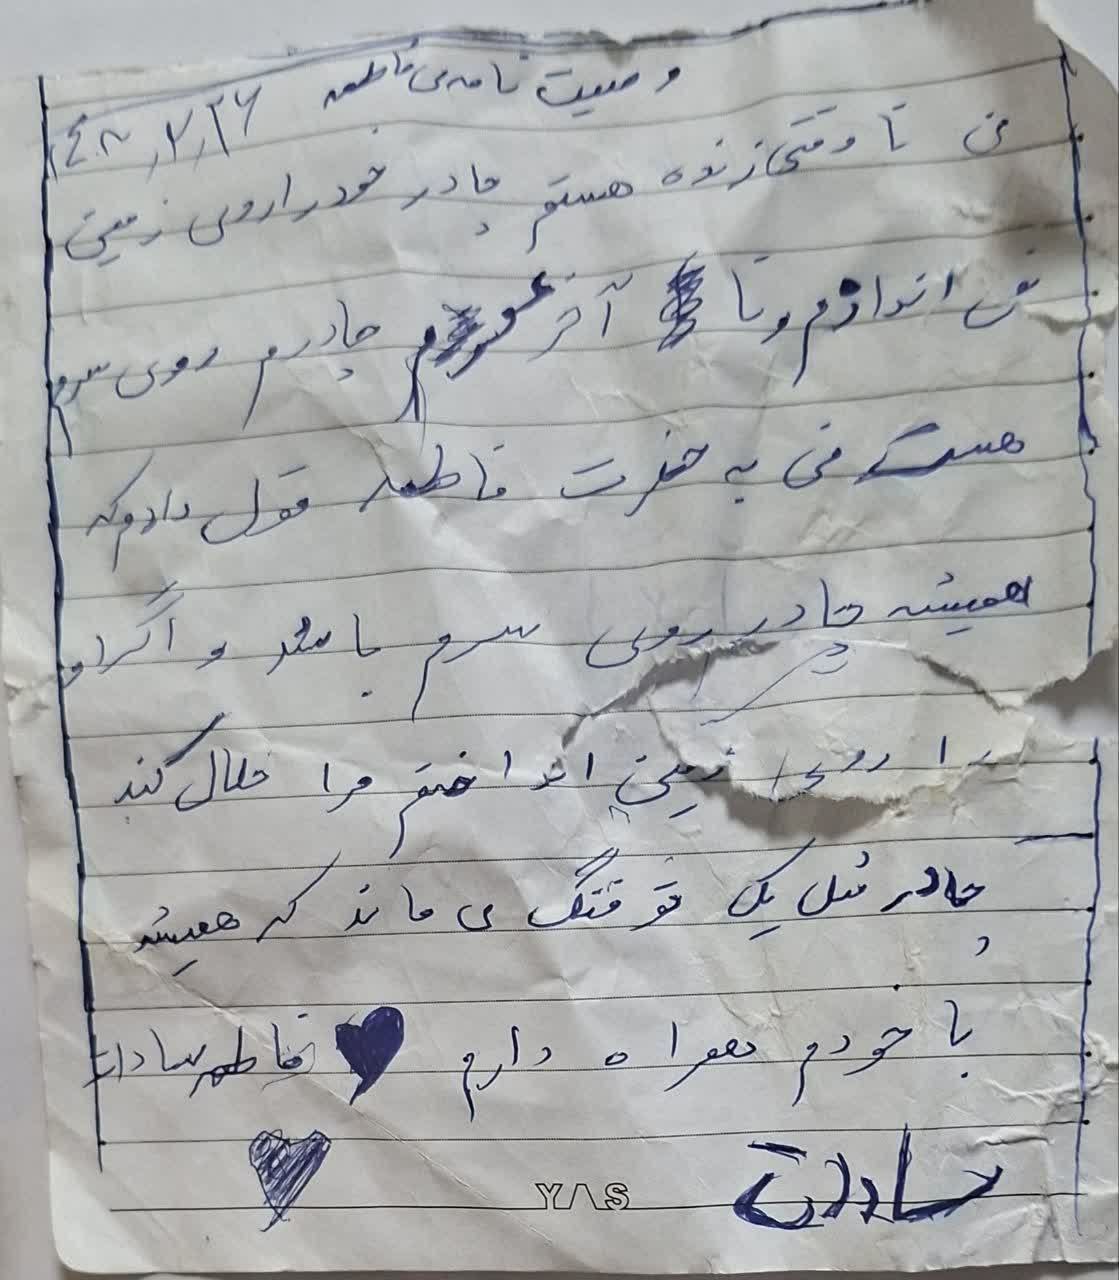 وصیت نامه ی فاطمه ۱۴۰۸٫۲٫۲۶
من تا وقتی زنده هستم چادر خودرا روی زمین
نمی اندازم و تا آخر عمرم چادرم روی سرم
هست من به حضرت فاطمه قول دادم که
همیشه چادر روی سرم باشد و اگر او
را روی زمین انداختم مرا حلال کند
چادر مثل یک تفنگ می ماند که همیشه
با خودم همراه دارم فاطمه سادات
YAS